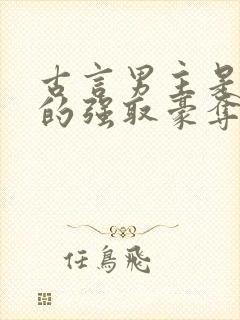 古言男主是
的强取豪夺
任鸟飛